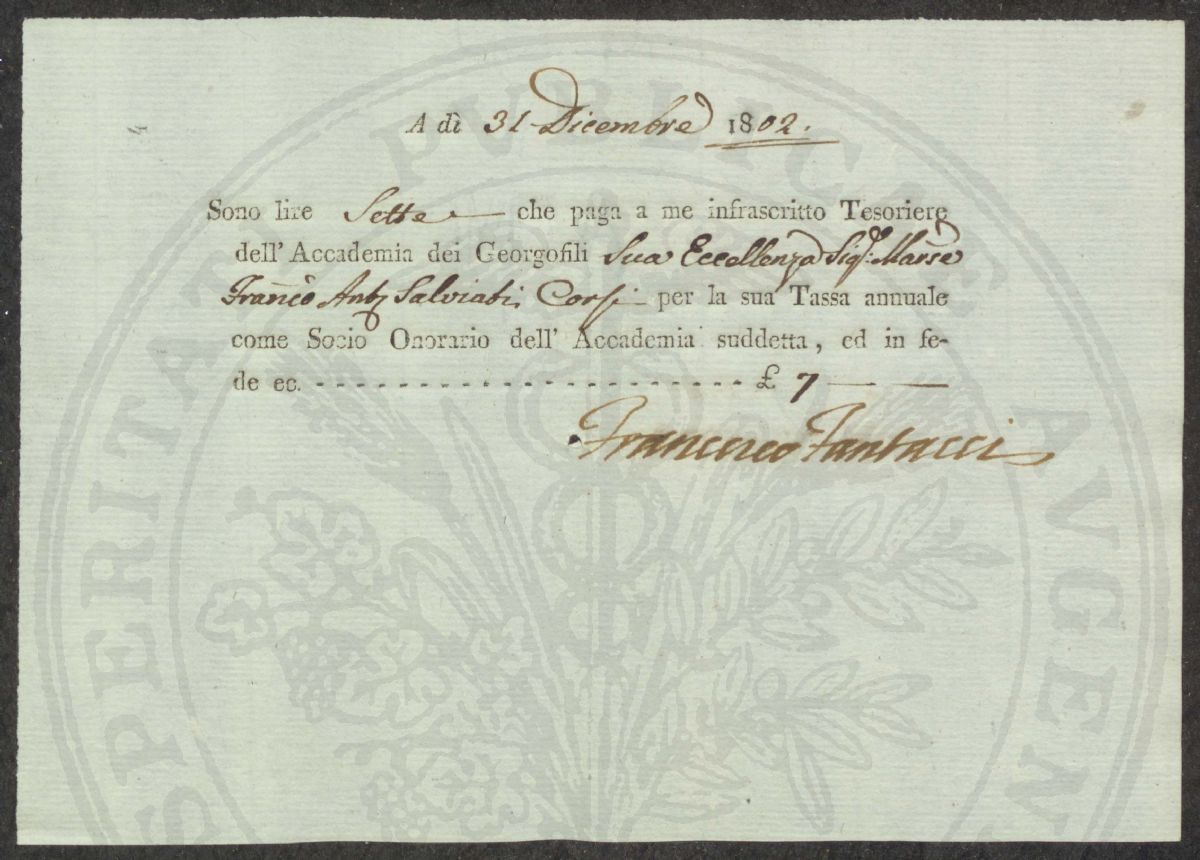 A dì 31 Dicembre 1802.
Sono lire Sette che paga a me infrascritto Tesoriere
dell' Accademia dei Georgofili Sua Eccellenza Sig: Marse
Franco Anto Salviati, Corsi per la sua Tassa annuale
come Socio Onorario dell' Accademia suddetta, ed in fe-
de ec. £ 7
Francesco Fantacci
SPERITATI PVBLICAE AVGEN